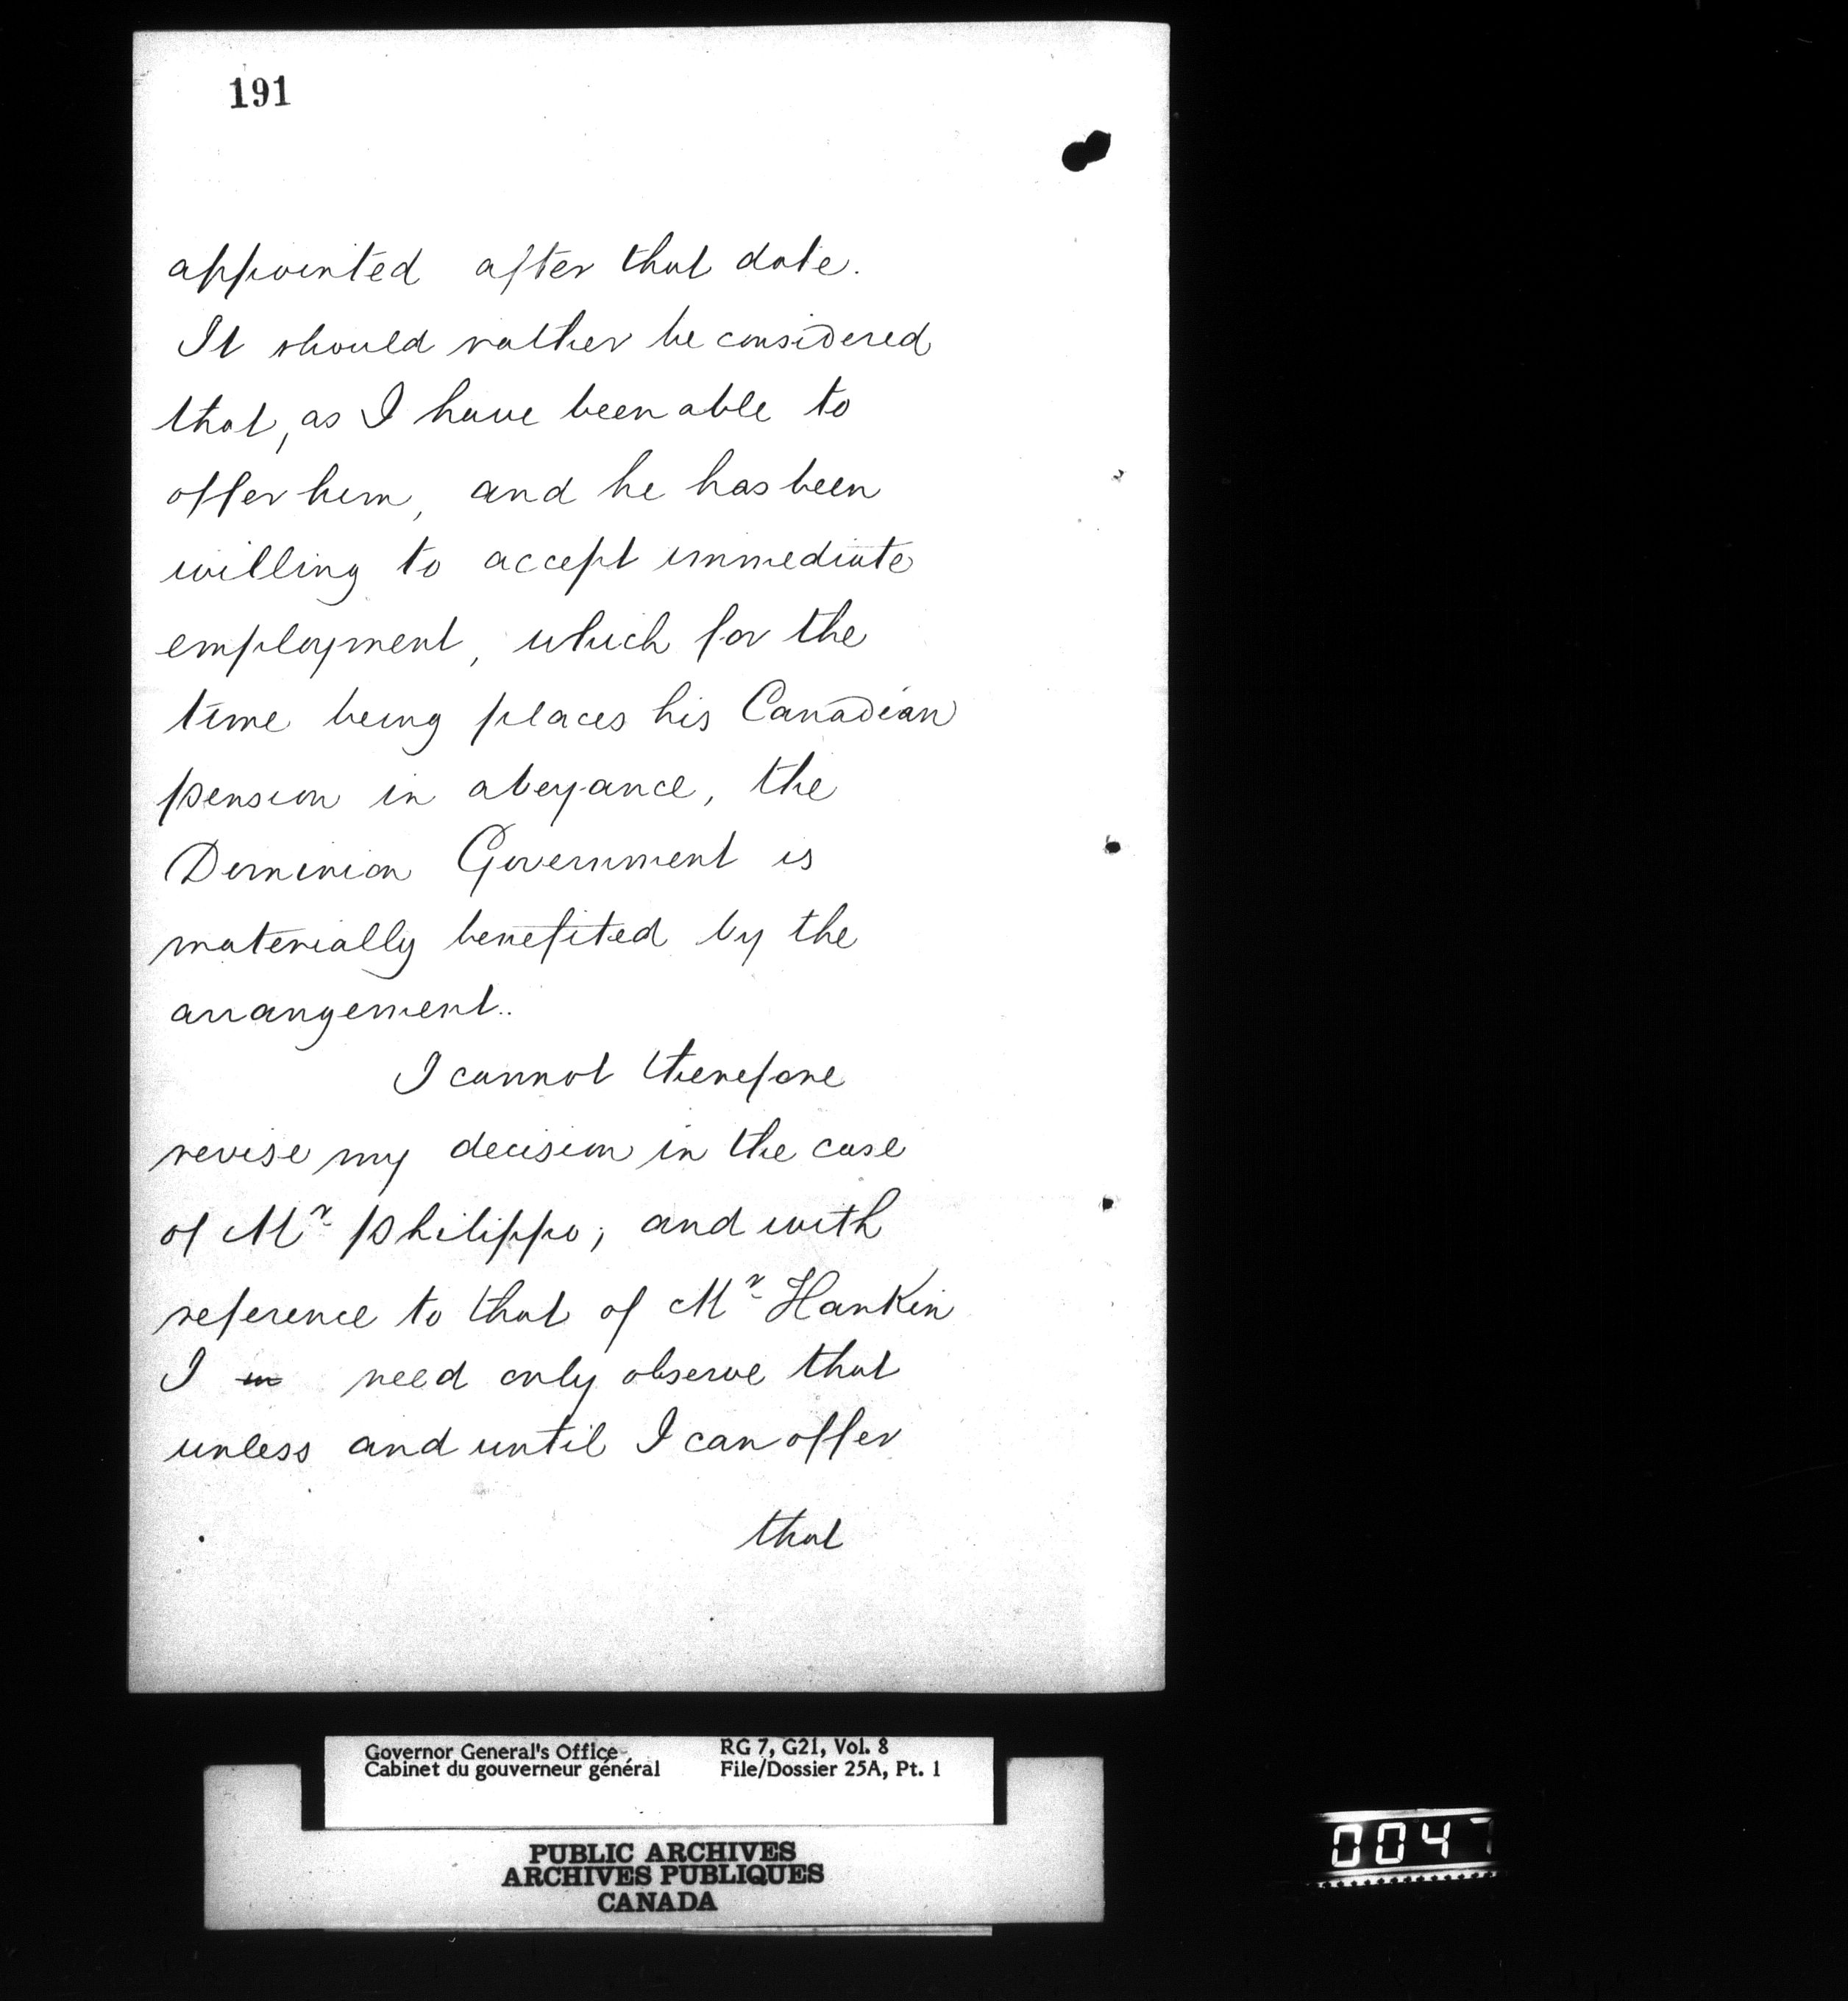 191
appointed after that date.
It should rather be considered
that, as I have been able to
offer him, and he has been
willing to accept immediate
employment, which for the
time being places his Canadian
pension in abeyance, the
Dominion Government is
materially benefited by the
arrangement..
I cannot therefore
revise my decision in the case
of Mr Philippo; and with
reference to that of Mr Hankin
I in need only observe that
unless and until I can offer
that
Governor General's Office
Cabinet du gouverneur général
RG 7, G21, Vol. 8
File/Dossier 25A, Pt. 1
PUBLIC ARCHIVES
ARCHIVES PUBLIQUES
CANADA
0047